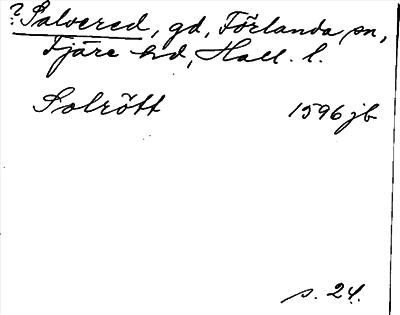 ? Salvered, gd, Förlanda sn,
Fjäre hd, Hall. l.
Solrött 1596 jb
s. 24.